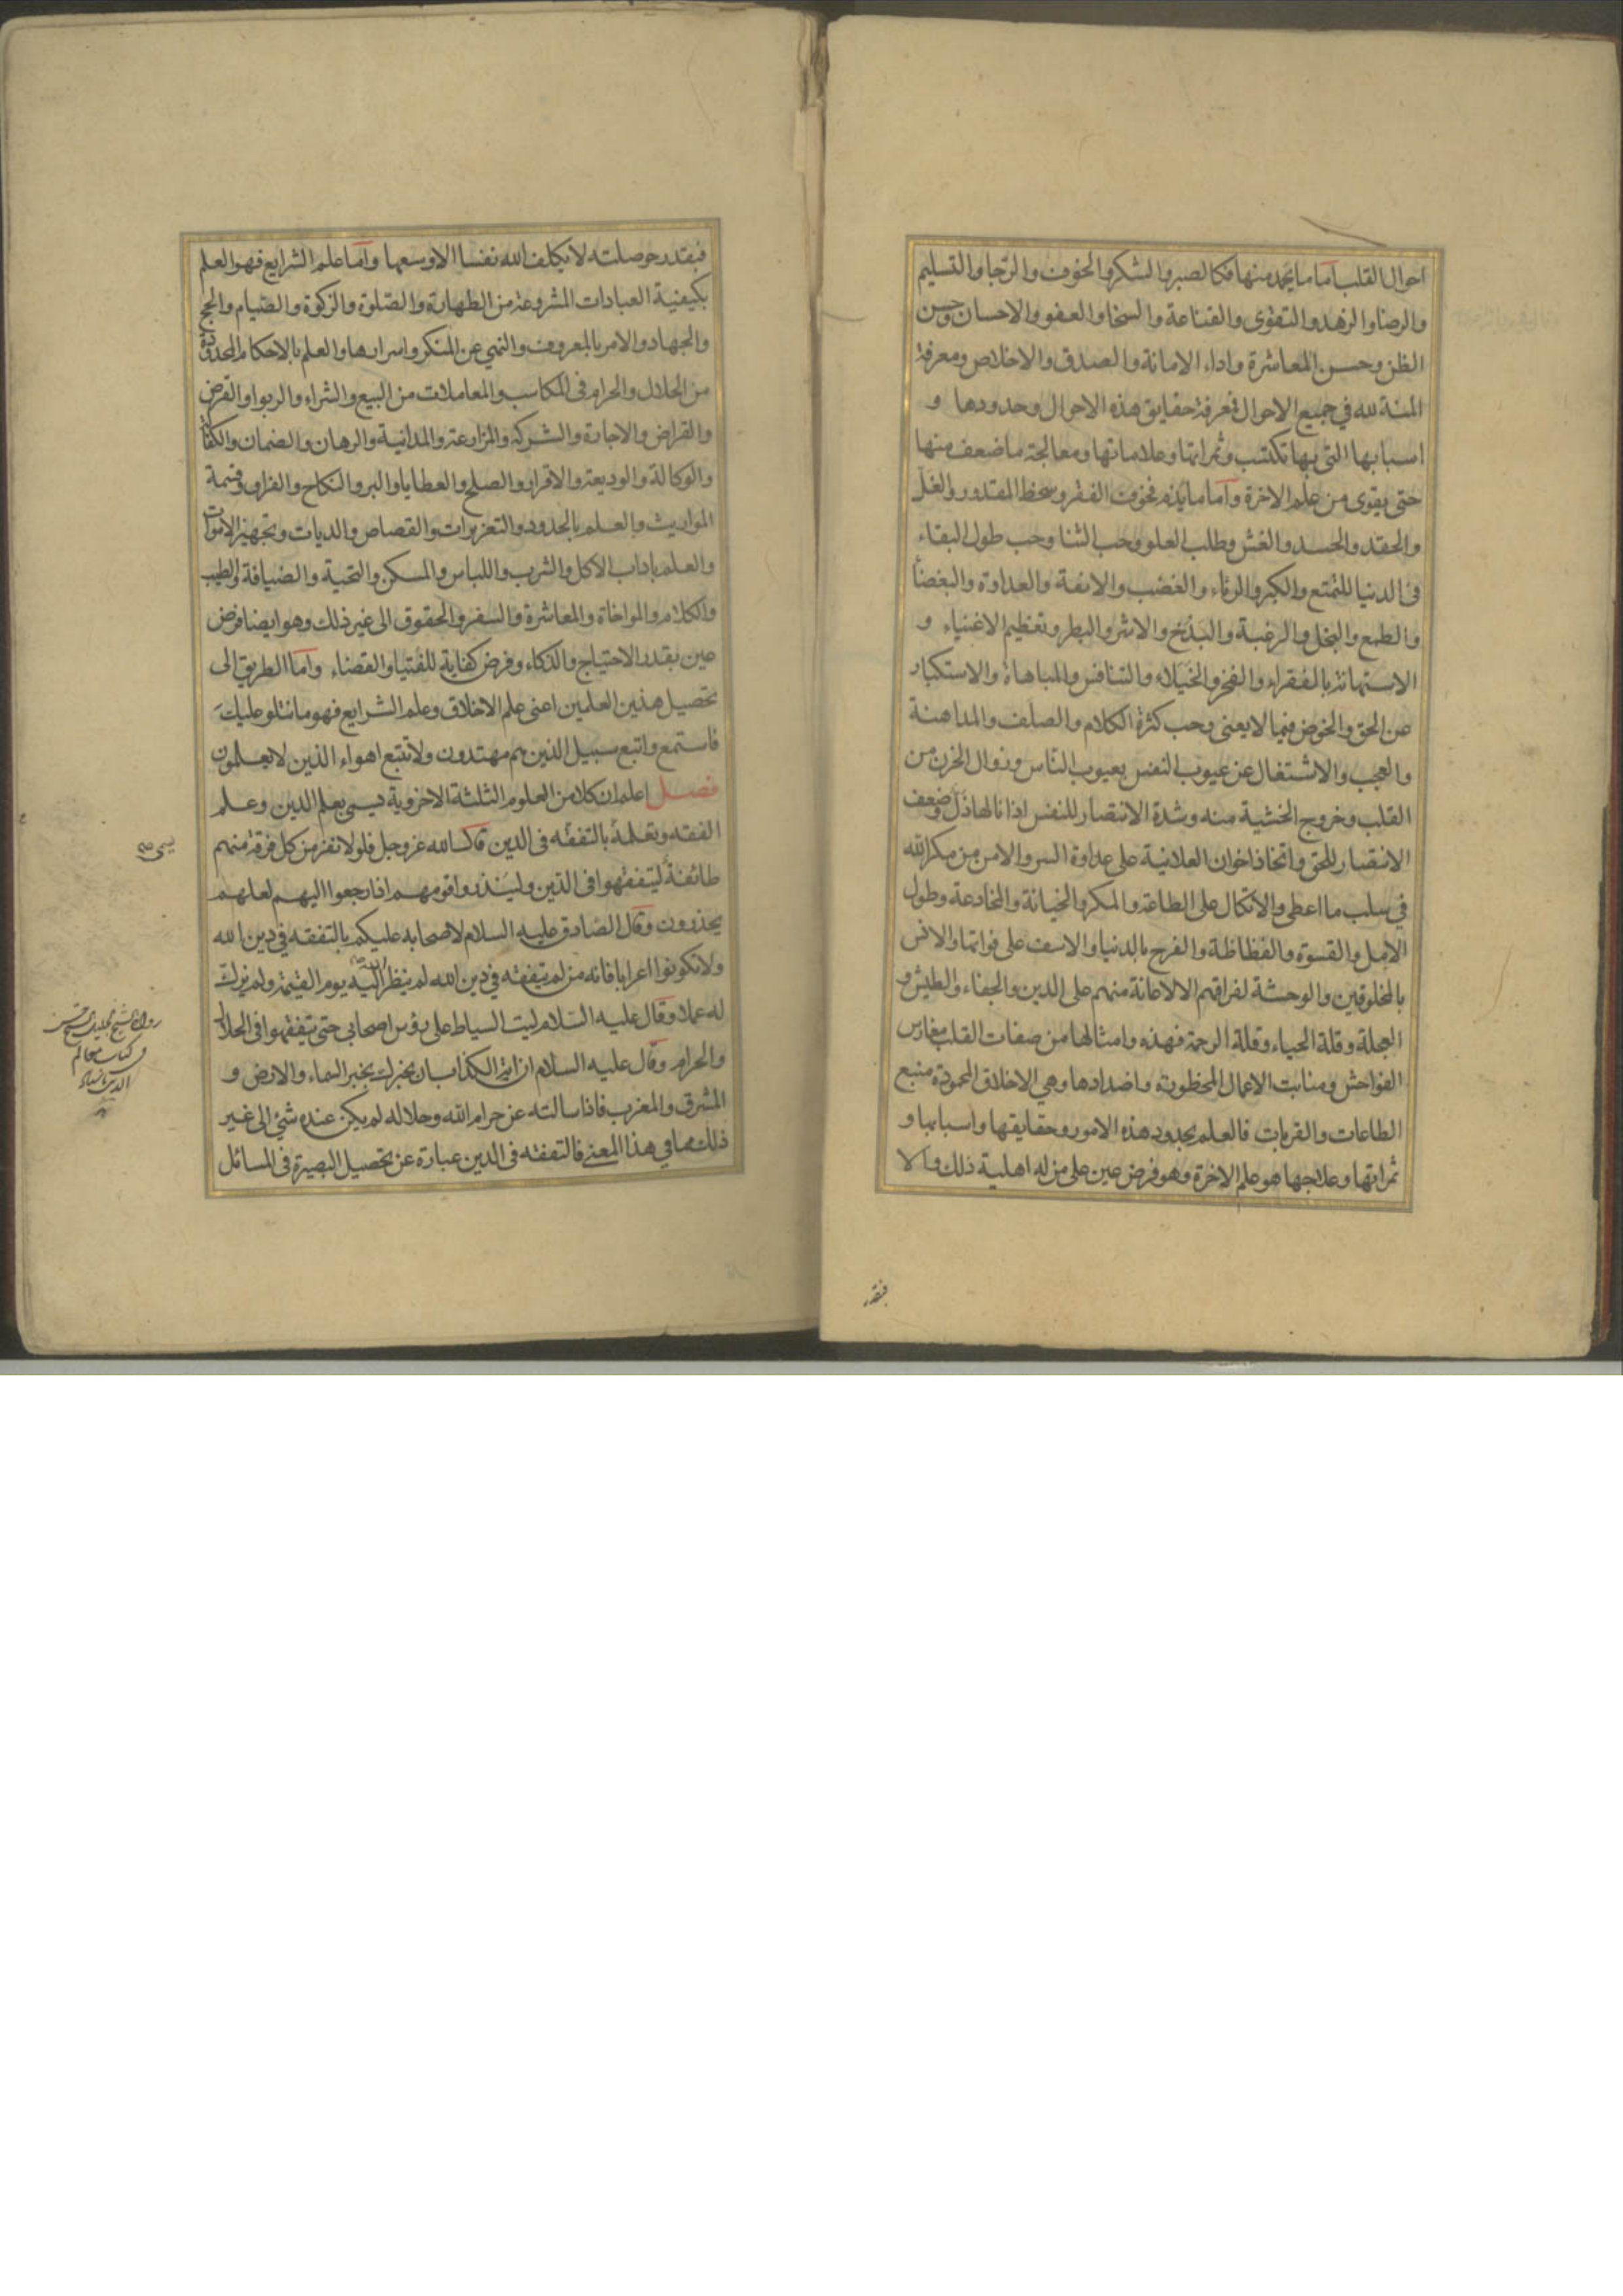 احوال القلب اما ما يحمد منها فكالصبر والشكر والخوف والرجا والتسليم
والرضا والزهد والتقوى والقناعة والسخا والعفو والاحسان وحسن
الظن وحسن المعاشرة واداء الامانة والصدق والاخلاص ومعرفة
المنة لله في جميع الاحوال فمعرفة حقايق هذه الاحوال وحدودها و
اسبابها التى بها تكتسب وثمراتها وعلاماتها ومعالجة ما ضعف منها
حتى يقوى من علم الاخرة واما ما يذم فخوف الفقر وسخط المقدور والغل
والحقد والحسد والغش وطلب العلو وحب الثنا وحب طول البقاء
فى الدنيا للتمتع والكبر والرئاء والغضب والانفة والعداوة والبغضأ
والطمع والبخل والرغبة والبذخ والاشر والبطر وتعظيم الاغنياء و
الاستهانة بالفقراء والفخر والخيلاء والتنافس والمباهاة والاستكبار
عن الحق والخوض فيما لا يعنى وحب كثرة الكلام والصلف والمداهنة
والعجب والاشتغال عن عيوب النفس بعيوب الناس وزوال الحزن من
القلب وخروج الخشية منه وشدة الانتصار للنفس اذا نالها ذل وضعف
الانتصار للحق واتخاذ اخوان العلانية على عداوة السر والامن من مكر الله
في سلب ما اعطى والاتكال على الطاعة والمكر والخيانة والمخادعة وطول
الامل والقسوة والفظاظة والفرح بالدنيا والاسف على فواتها والانس
بالمخلوقين والوحشة لفراقهم الا لاعانة منهم على الدين والجفاء والطيش و
العجلة وقلة الحياء وقلة الرحمة فهذه وامثالها من صفات القلب مغارس
الفواحش ومنابت الاعمال المحظورة واضدادها وهي الاخلاق المحمودة منبع
الطاعات والقربات فالعلم بحدود هذه الامور وحقايقها واسبابها و
ثمراتها وعلاجها هو علم الاخرة وهو فرض عين على من له اهلية ذلك والا
فبقدر
فبقدر حوصلته لا يكلف الله نفسا الا وسعها واما علم الشرايع فهو العلم
بكيفية العبادات المشروعة من الطهارة والصلوة والزكوة والصيام والحج
والجهاد والامر بالمعروف والنهي عن المنكر واسرارها والعلم بالاحكام المحدودة
من الحلال والحرام فى المكاسب والمعاملات من البيع والشراء والربوا والقرض
والقراض والاجارة والشركة والمزارعة والمداينة والرهان والضمان والكفالة
والوكالة والوديعة والاقرار والصلح والعطايا والبر والنكاح والفراق وقسمة
المواريث والعلم بالحدود والتعزيرات والقصاص والديات وتجهيز الاموات
والعلم باداب الاكل والشرب واللباس والمسكن والتحية والضيافة والطيب
والكلام والمواخاة والمعاشرة والسفر والحقوق الى غير ذلك وهو ايضا فرض
عين بقدر الاحتياج والذكاء وفرض كفاية للفتيا والقضاء واما الطريق الى
تحصيل هذين العلمين اعنى علم الاخلاق وعلم الشرايع فهو ما نتلو عليك
فاستمع واتبع سبيل الذين هم مهتدون ولا تتبع اهواء الذين لا يعلمون
فصل اعلم ان كلا من العلوم الثلثة الاخروية يسمى بعلم الدين وعلم
الفقه وتعلمه بالتفقه فى الدين قال الله عز وجل فلولا نفر من كل فرقة منهم
طائفة ليتفقهوا فى الدين ولينذروا قومهم اذا رجعوا اليهم لعلهم
يحذرون وقال الصادق عليه السلام لاصحابه عليكم بالتفقه في دين الله
ولا تكونوا اعرابا فانه من لم يتفقه في دين الله لم ينظر الله اليه يوم القيمة ولم يزك
له عملا وقال عليه السلام ليت السياط على رؤس اصحابى حتى يتفقهوا فى الحلال
والحرام وقال عليه السلام ان اية الكذاب بان يخبرك بخبر السماء والارض و
المشرق والمغرب فاذا سالته عن حرام الله وحلاله لم يكن عنده شئ الى غير
ذلك مما في هذا المعنى فالتفقه فى الدين عبارة عن تحصيل البصيرة فى المسائل